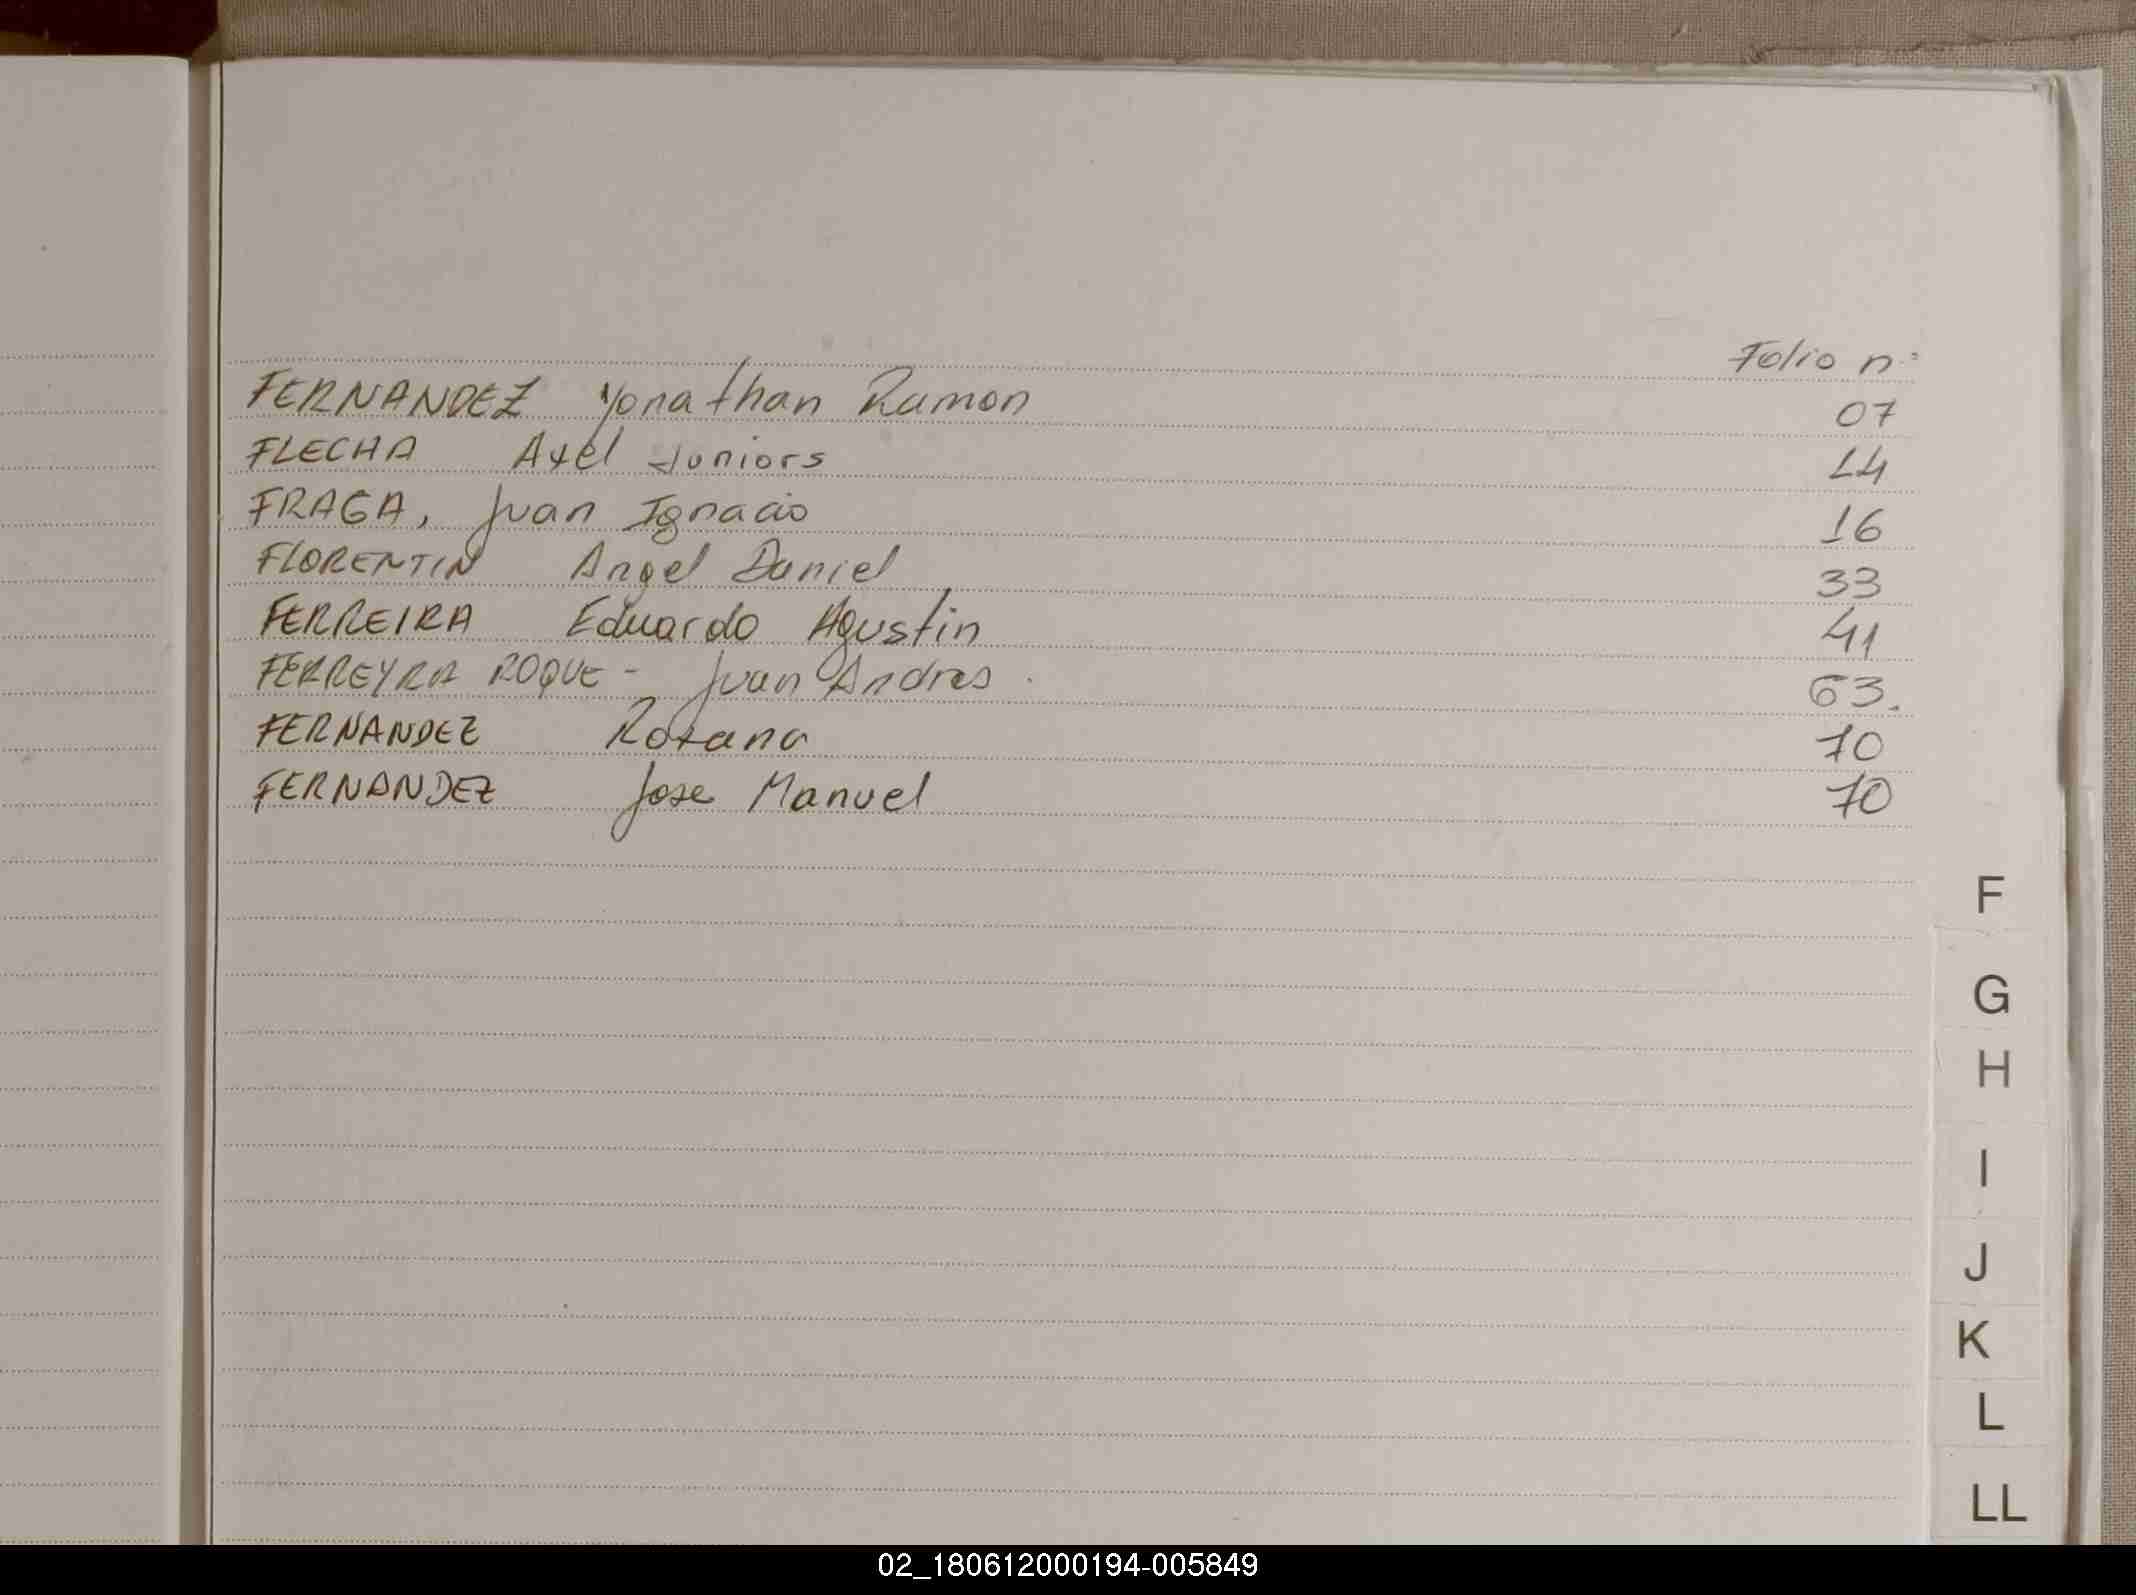 Folio n°
FERNANDEZ Yonathan Ramon 07
FLECHA Axel Juniors 14
FRAGA, Juan Ignacio 16
FLORENTIN Angel Daniel 33
FERREIRA Eduardo Agustin 41
FERREYRA ROQUE - Juan Andres. 63.
FERNANDEZ Roxana 70
FERNANDEZ Jose Manuel 70
F
G
H
I
J
K
L
LL
02_180612000194-005849